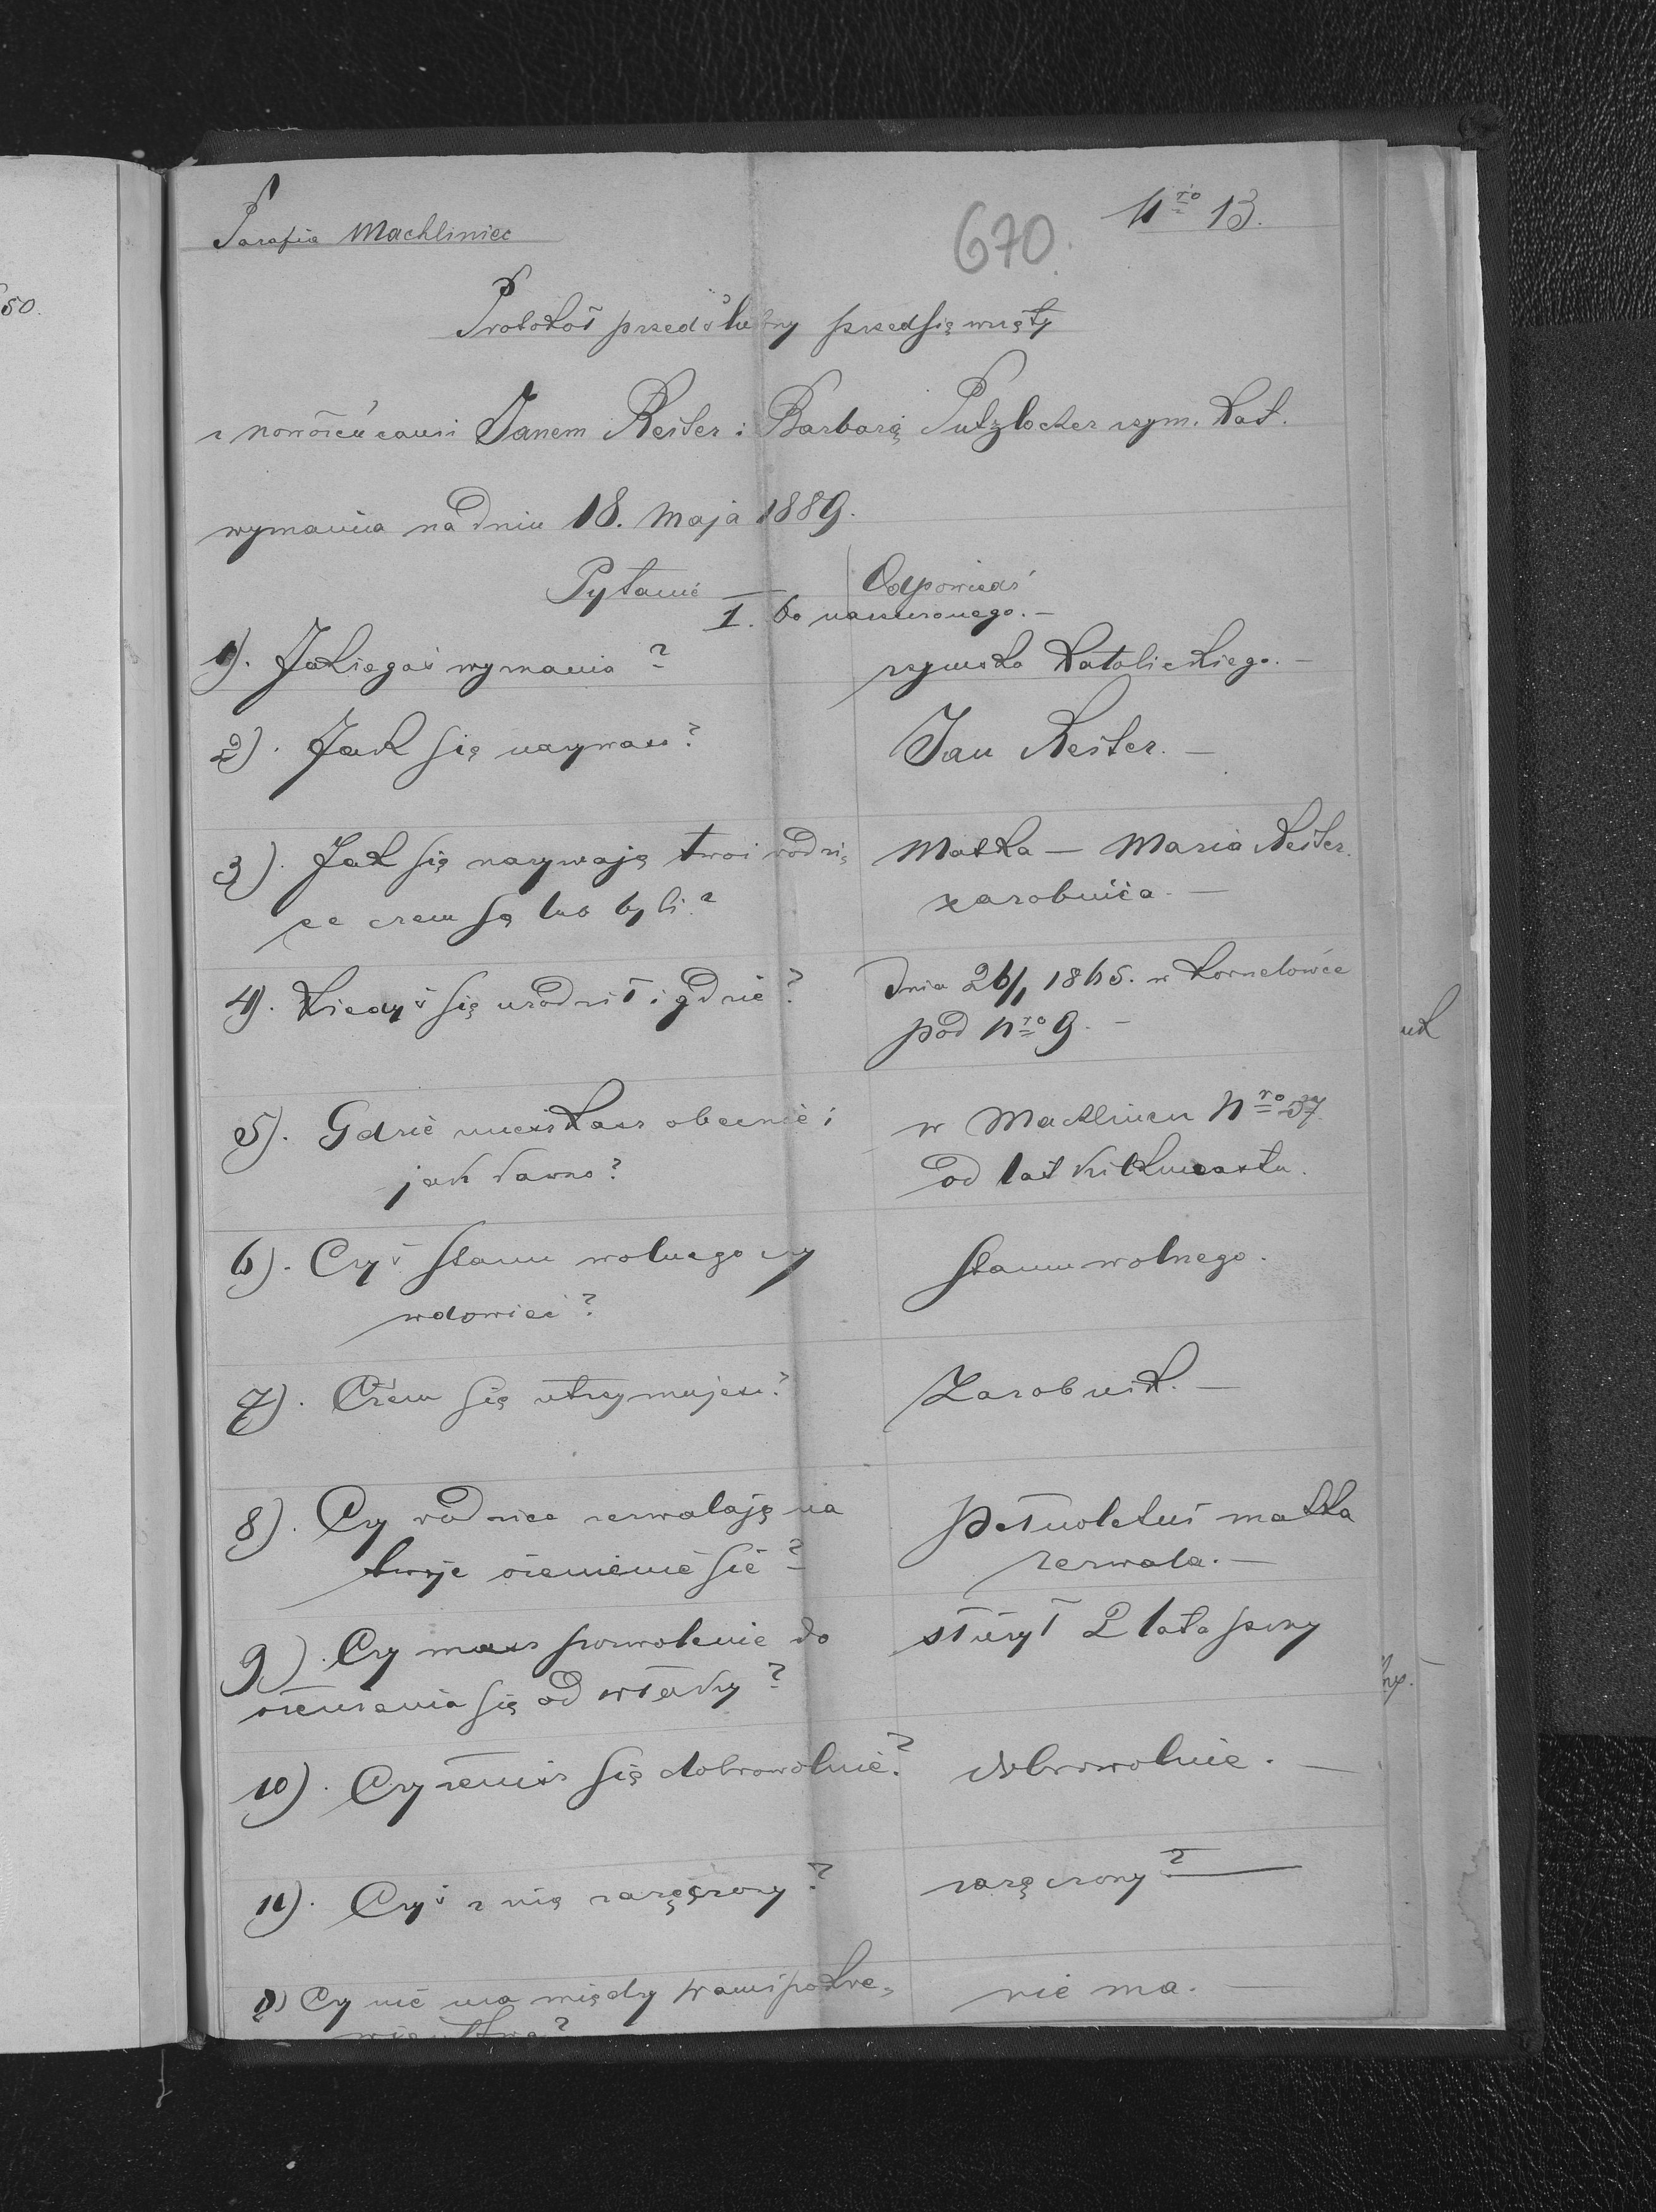 50.
Parafia Machliniec
Nro 13.
670.
Protokół przedślubny przedsięwzięty
z nowożeńcami Janem Reiter i Barbarą Putzlocher rzym. kat.
wyznania na dniu 18. Maja 1889.
Pytanie Odpowiedź
1. Do narzeczonego. —
1). Jakiegoś wyznania? rzymsko katolickiego. —
2). Jak się nazywasz? Jan Reiter. —
3). Jak się nazywają twoi rodzi= Matka — Maria Reiter
ce czem są lub byli? zarobnica. —
4). Kiedyś się urodził i gdzie? Dnia 26/1 1865. w Kornelówce
pod Nro 9. —
5). Gdzie mieszkasz obecnie i w Machlińcu Nro 37
jak dawno? od lat kilkunastu.
6). Czyś stanu wolnego czy stanu wolnego.
wdowiec?
7). Czem się utrzymujesz? Zarobnik. —
8). Czy rodzice zezwalają na Pełnoletni matka
twoje ożenienie się? zezwala. —
9). Czy masz pozwolenie do służył 2 lata przy
ożenienia się od władzy?
10). Czy żenisz się dobrowolnie? dobrowolnie. —
11). Czyś z nią zaręczony? zaręczony? —
Czy nie ma między wami pokre= nie ma. —
wieństwa?